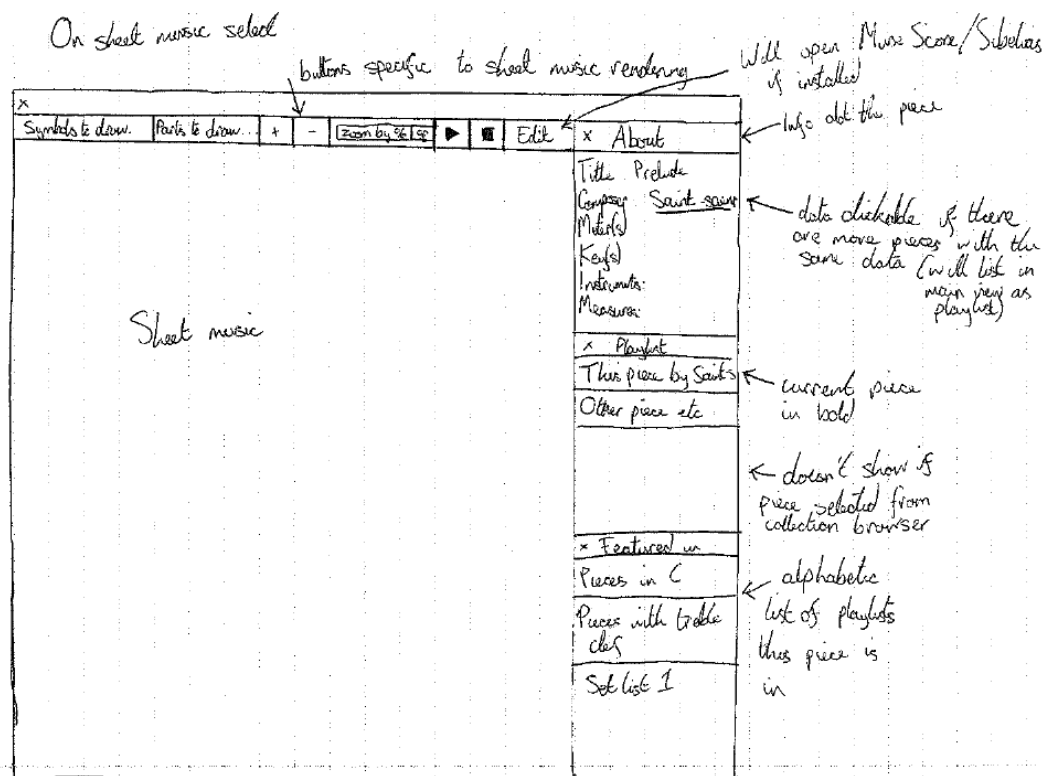 On sheet music select
buttons specific to sheet music rendering
Will open MuseScore/Sibelius
if installed
x
Symbols to draw..
Parts to draw...
+
-
zoom by %
Edit
x About
Info abt the piece
Title Prelude
Composer Saint-saens
Meter(s)
Key(s)
Instruments:
Measures:
data clickable if there
are more pieces with the
same data (will list in
main view as
playlist)
Sheet music
x Playlist
This piece by Saints
current piece
in bold
Other piece etc
doesn't show if
piece selected from
collection browser
x Featured in
Pieces in C
alphabetic
list of playlists
this piece is
in
Pieces with treble
clef
Set list 1